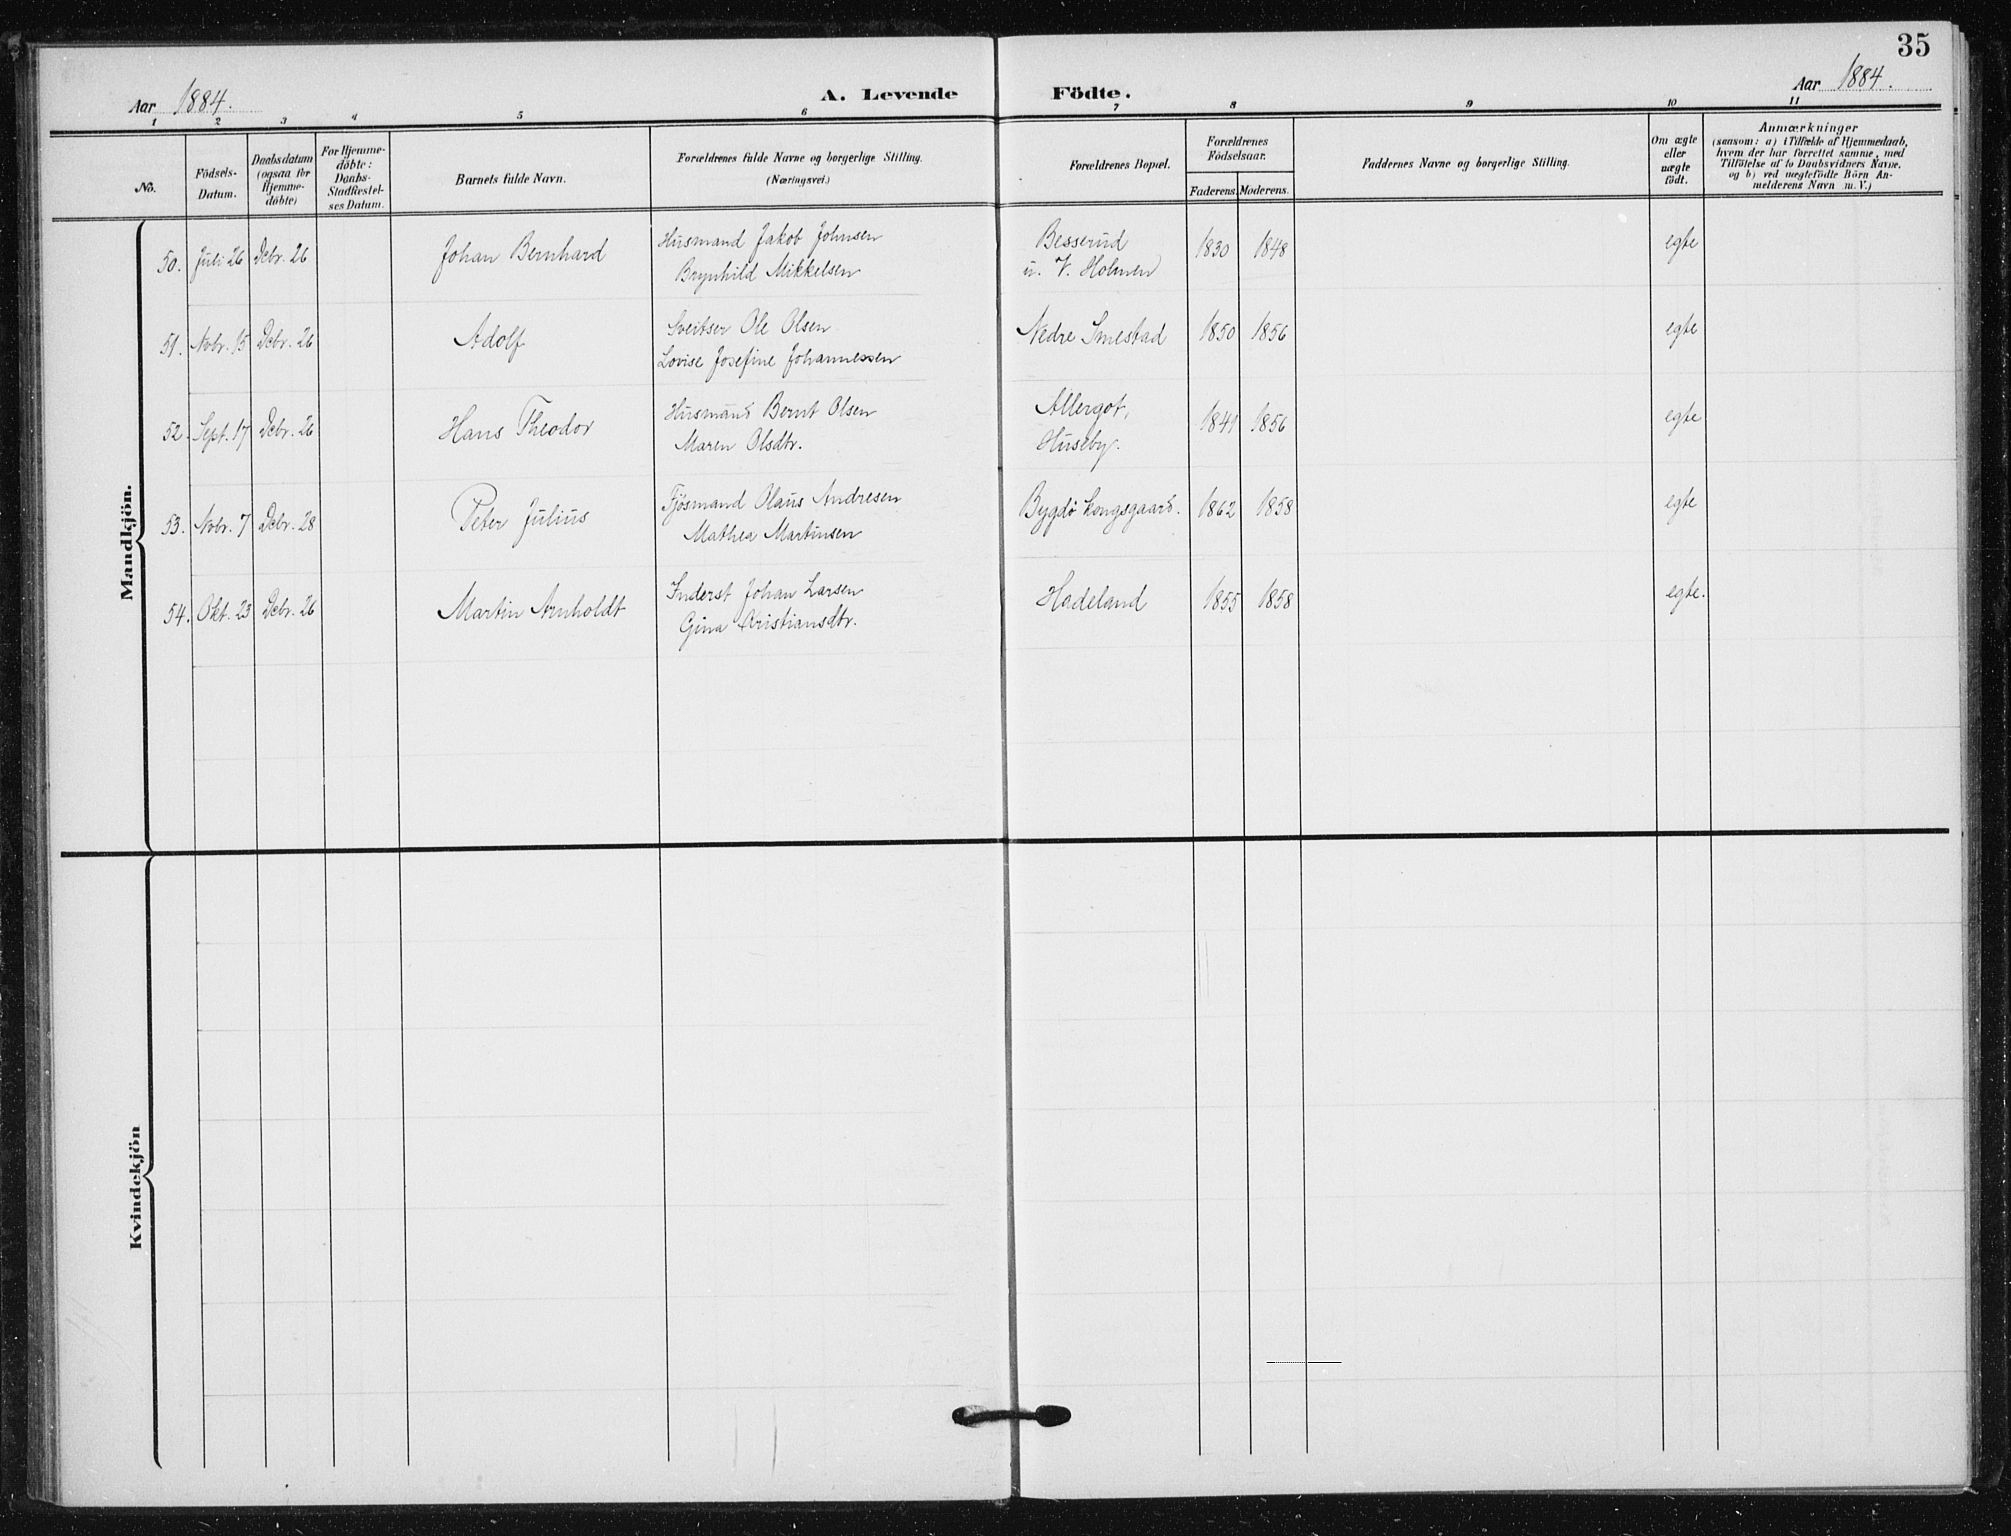 35
Aar 1884.
A. Levende Födte.
Aar 1884.
1 2 3 4 5 6 7 8 9 10 11
No.
Födsels-
Datum.
Daabsdatum
(ogsaa for
Hjemme-
döbte)
For Hjemme-
döbte:
Daabs-
Stadfæstel-
ses Datum.
Barnets fulde Navn.
Forældrenes fulde Navne og borgerlige Stilling.
(Næringsvei.)
Forældrenes Bopæl.
Forældrenes
Födselsaar.
Faderens. Moderens.
Faddernes Navne og borgerlige Stilling.
Om ægte
eller
uægte
födt.
Anmærkninger
(saasom: a) i Tilfælde af Hjemmedaab,
hvem der har forrettet samme, med
Tilföielse af to Daabsvidners Navne,
og b) ved uægtefödte Börn An-
melderens Navn m. V.)
Mandkjön.
50. Juli 26 Debr. 26 Johan Bernhard Husmand Jakob Johnsen Besserud 1830 1848 egte
Brynhild Mikkelsen u. V. Holmen
51. Nobr. 15 Debr. 26 Adolf Sveitser Ole Olsen Nedre Smestad 1850 1856 egte
Lovise Josefine Johannessen
52. Sept. 17 Debr. 26 Hans Theodor Husmand Bernt Olsen Allergot, 1841 1856 egte
Maren Olsdtr. Huseby.
53. Nobr. 7 Debr. 28 Peter Julius Fjösmand Olaus Andresen Bygdö Kongsgaard. 1862 1858 egte
Mathea Martinsen
54. Okt. 23 Debr. 26 Martin Arnholdt Inderst Johan Larsen Hadeland 1855 1858 egte.
Gina Kristiansdtr.
Kvindekjön